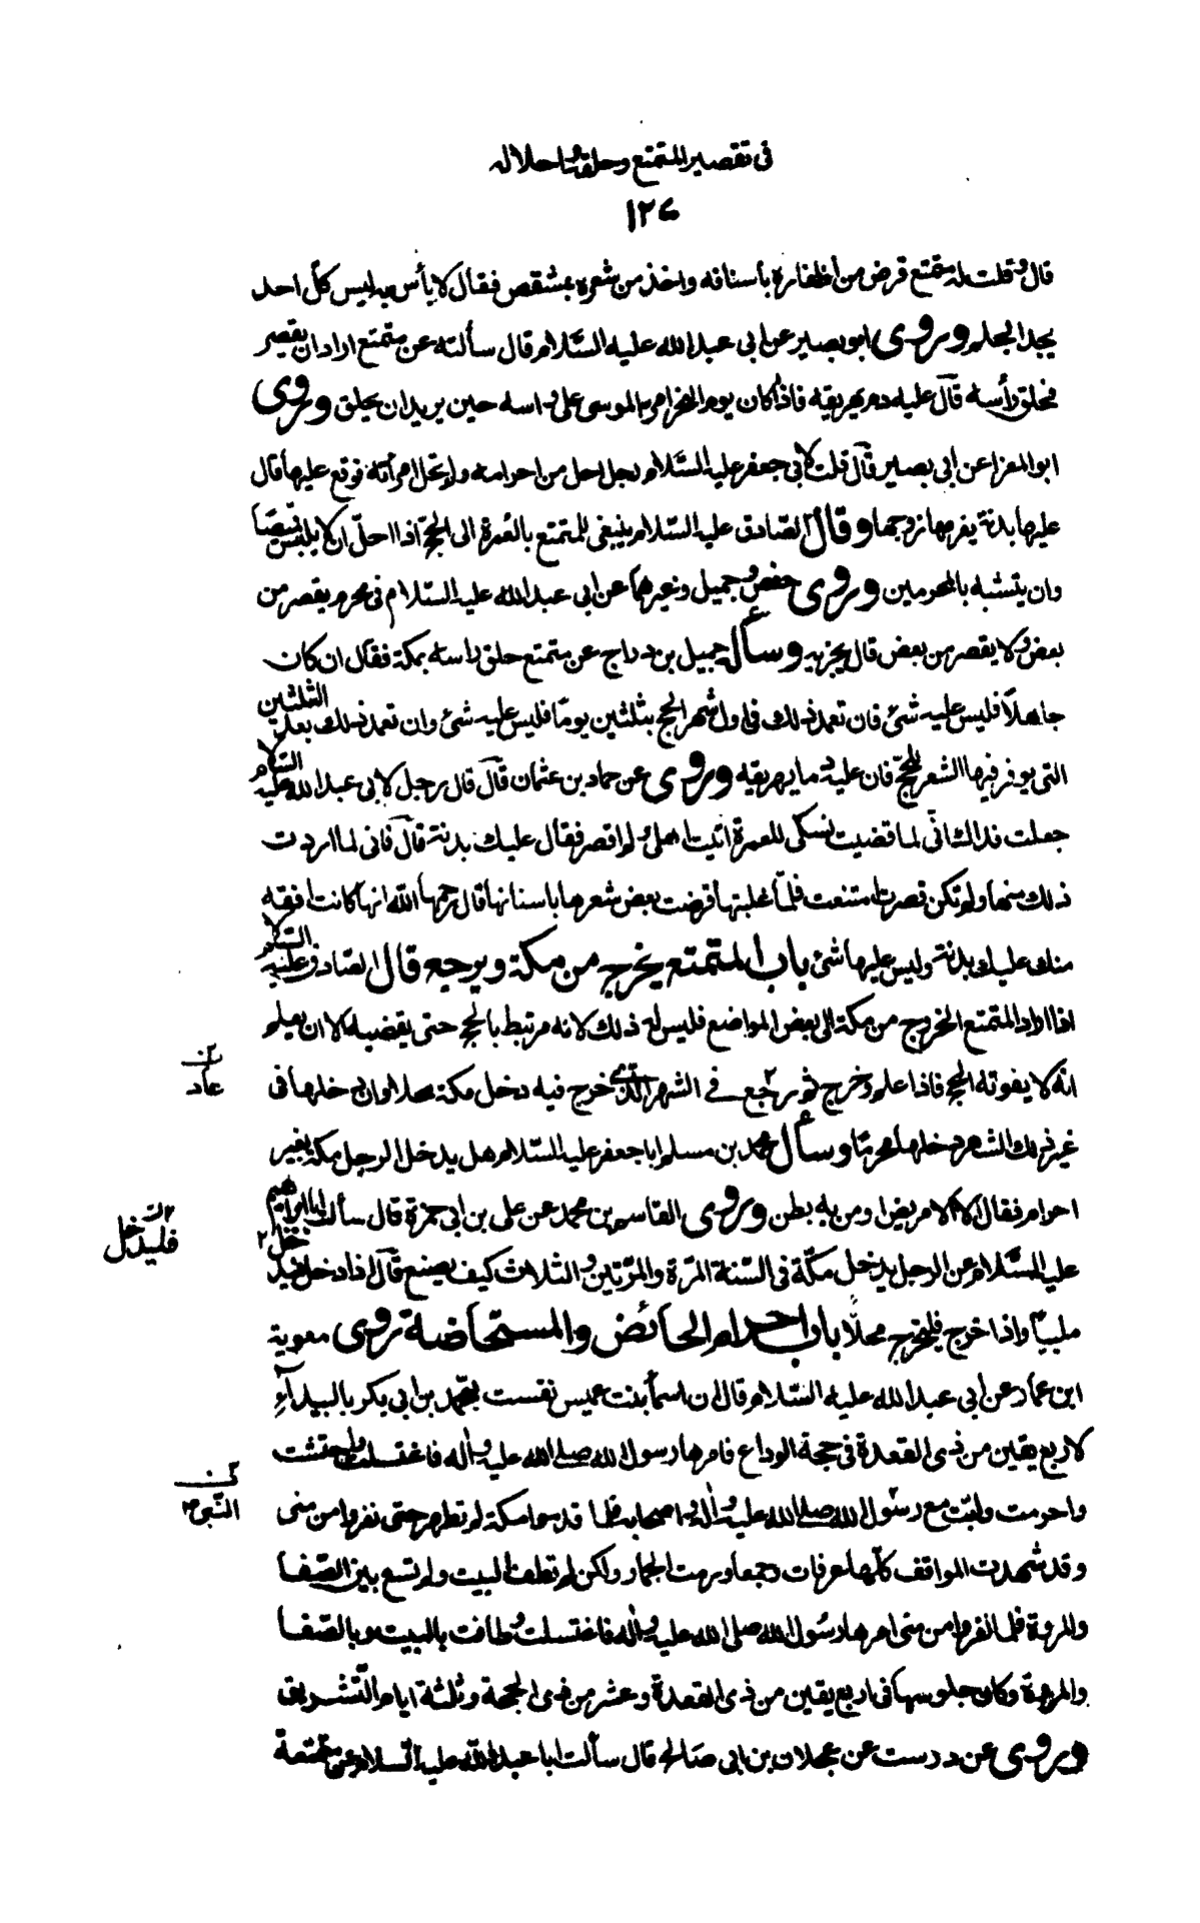 فى تقصير المتمتع وحلقه واحلاله
١٢٧
قال وقلت له متمتع قرض من أظفاره بأسنانه واخذ من شعره بمشقص فقال لا بأس به ليس كل احد
يجد الجلم وروى ابو بصير عن ابى عبد الله عليه السّلام قال سألته عن متمتع اراد ان يقصر
فحلق رأسه قال عليه دم يهريقه فاذا كان يوم النحر امر الموسى على رأسه حين يريد ان يحلق وروى
ابو المعزا عن ابى بصير قال قلت لابى جعفر عليه السّلام رجل احل من احرامه ولم تحل امرأته فوقع عليها قال
عليها بدنة يغرمها زوجها وقال الصّادق عليه السّلام ينبغى للمتمتع بالعمرة الى الحجّ اذا احلّ ان لا يلبس قميصا
وان يتشبه بالمحرمين وروى حفص وجميل وغيرهما عن ابى عبد الله عليه السّلام فى محرم يقصر من
بعض ولا يقصر من بعض قال يجزيه وسأل جميل بن دراج عن متمتع حلق راسه بمكة فقال ان كان
جاهلاً فليس عليه شئ فان تعمد ذلك فى اول شهر الحج بثلثين يومًا فليس عليه شئ وان تعمد ذلك بعد الثلثين
التى يوفر فيها الشعر للحجّ فان عليه دما يهريقه وروى عن حماد بن عثمان قال قال رجل لابى عبد الله عليه السّلام
جعلت فداك انّى لما قضيت نسكى للعمرة اتيت اهلى ولم اقصر فقال عليك بدنة قال فانى لما اردت
ذلك منها ولم تكن قصرت امتنعت فلمّا غلبتها قرضت بعض شعرها باسنانها قال رحمها الله انها كانت افقه
منك عليك بدنة وليس عليها شئ باب المتمتع يخرج من مكة ويرجع قال الصّادق عليه السّلام
اذا اراد المتمتع الخروج من مكة الى بعض المواضع فليس له ذلك لانه مرتبط بالحج حتى يقضيه الا ان يعلم
انّه لا يفوته الحج فاذا علم وخرج ثم رجع فى الشهر الذى خرج فيه دخل مكة محلا وان دخلها فى
عاد
غير ذلك الشهر دخلها محرمًا وسأل محمد بن مسلم ابا جعفر عليه السّلام هل يدخل الرجل مكة بغير
احرام فقال لا الا مريض او من به بطن وروى القاسم بن محمد عن على بن ابى حمزة قال سألت ابا ابراهيم
فليدخل
عليه السّلام عن الرجل يدخل مكّة فى السّنة المرّة والمرّتين والثلاث كيف يصنع قال اذا دخل فليدخل
ملبيًا واذا خرج فليخرج محلًا باب احرام الحائض والمستحاضة روى معوية
ابن عمّار عن ابى عبد الله عليه السّلام قال ان اسمأ بنت عميس نفست بمحمّد بن ابى بكر بالبيدآءِ
لاربع بقين من ذى القعدة فى حجة الوداع فامرها رسول الله صلى الله عليه وآله فاغتسلت واحتشت
واحرمت ولبّت مع رسول الله صلى الله عليه وآله واصحابه فلما قدموا مكة لم تطهر حتى نفروا من منى
النّبى
وقد شهدت المواقف كلّها عرفات وجمعا ورمت الجمار ولكن لم تطف بالبيت ولم تسع بين الصّفا
والمروة فلما نفروا من منى امرها رسول الله صلى الله عليه وآله فاغتسلت وطافت بالبيت وبالصّفا
والمروة وكان جلوسها فى اربع بقين من ذى القعدة وعشر من ذى الحجة وثلثة ايام التّشريق
وروى عن درست عن عجلان بن ابى صالح قال سألت ابا عبد الله عليه السلام عن متمتعة